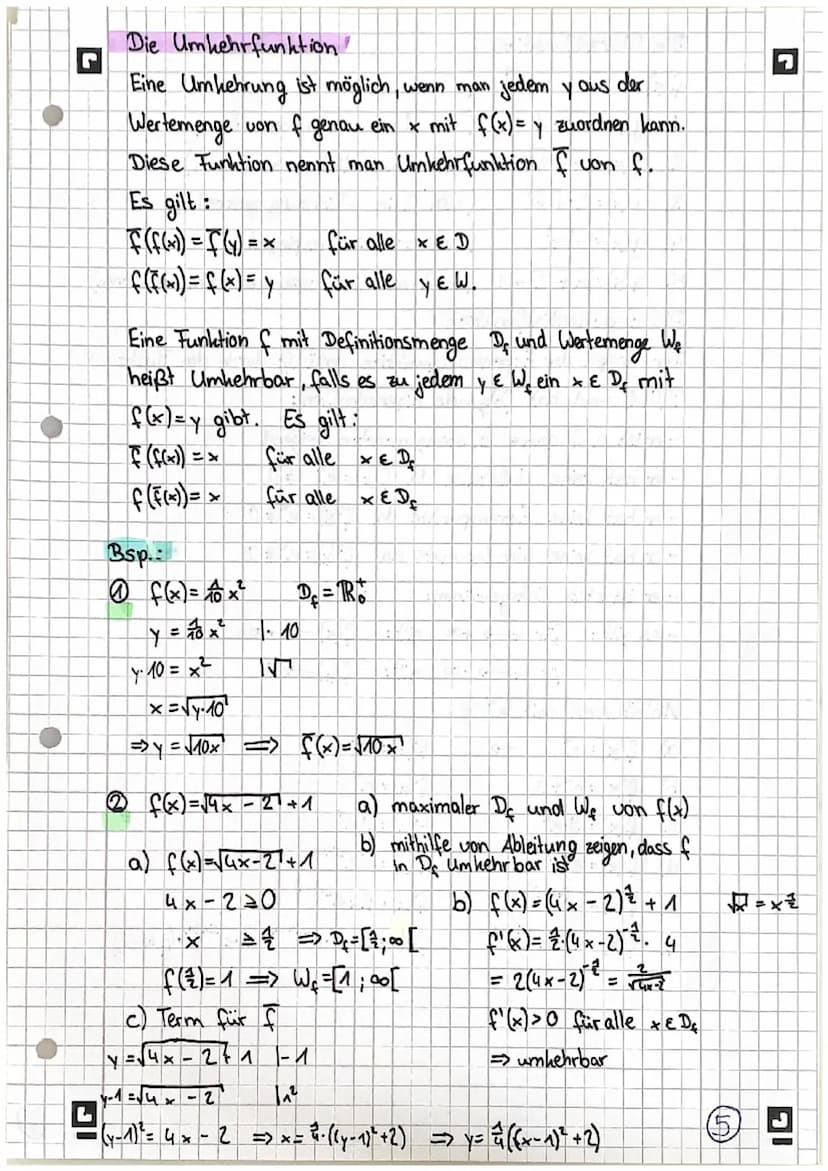 Die Umkehrfunktion
Eine Umkehrung ist möglich, wenn man jedem y aus der
Wertemenge von f genau ein x mit f(x) = y zuordnen kann.
Diese Funktion nennt man Umkehrfunktion f̅ von f.
Es gilt:
f̅(f(x)) = f̅(y) = x für alle x ∈ D
f(f̅(x)) = f(x) = y für alle y ∈ W.
Eine Funktion f mit Definitionsmenge D_f und Wertemenge W_f
heißt Umkehrbar, falls es zu jedem y ∈ W_f ein x ∈ D_f mit
f(x) = y gibt. Es gilt:
f̅(f(x)) = x für alle x ∈ D_f
f(f̅(x)) = x für alle x ∈ D_f
Bsp.:
① f(x) = 1/10 x² D_f = ℝ₀⁺
y = 1/10 x² |· 10
y·10 = x² |√
x = √(y·10)
⇒ y = √(10x) ⇒ f̅(x) = √(10x)
② f(x) = √(4x - 2) + 1 a) maximaler D_f und W_f von f(x)
b) mithilfe von Ableitung zeigen, dass f
in D_f umkehrbar ist
a) f(x) = √(4x - 2) + 1
4x - 2 ≥ 0
x ≥ 1/2 ⇒ D_f = [1/2; ∞[
f(1/2) = 1 ⇒ W_f = [1; ∞[
b) f(x) = (4x - 2)^(1/2) + 1 √x = x^(1/2)
f'(x) = 1/2·(4x - 2)^(-1/2) · 4
= 2(4x - 2)^(-1/2) = 2/√(4x-2)
f'(x) > 0 für alle x ∈ D_f
⇒ umkehrbar
c) Term für f̅
y = √(4x - 2) + 1 |- 1
y-1 = √(4x - 2) |²
(y-1)² = 4x - 2 ⇒ x = 1/4·((y-1)² + 2) ⇒ y = 1/4((x-1)² + 2)
⑤